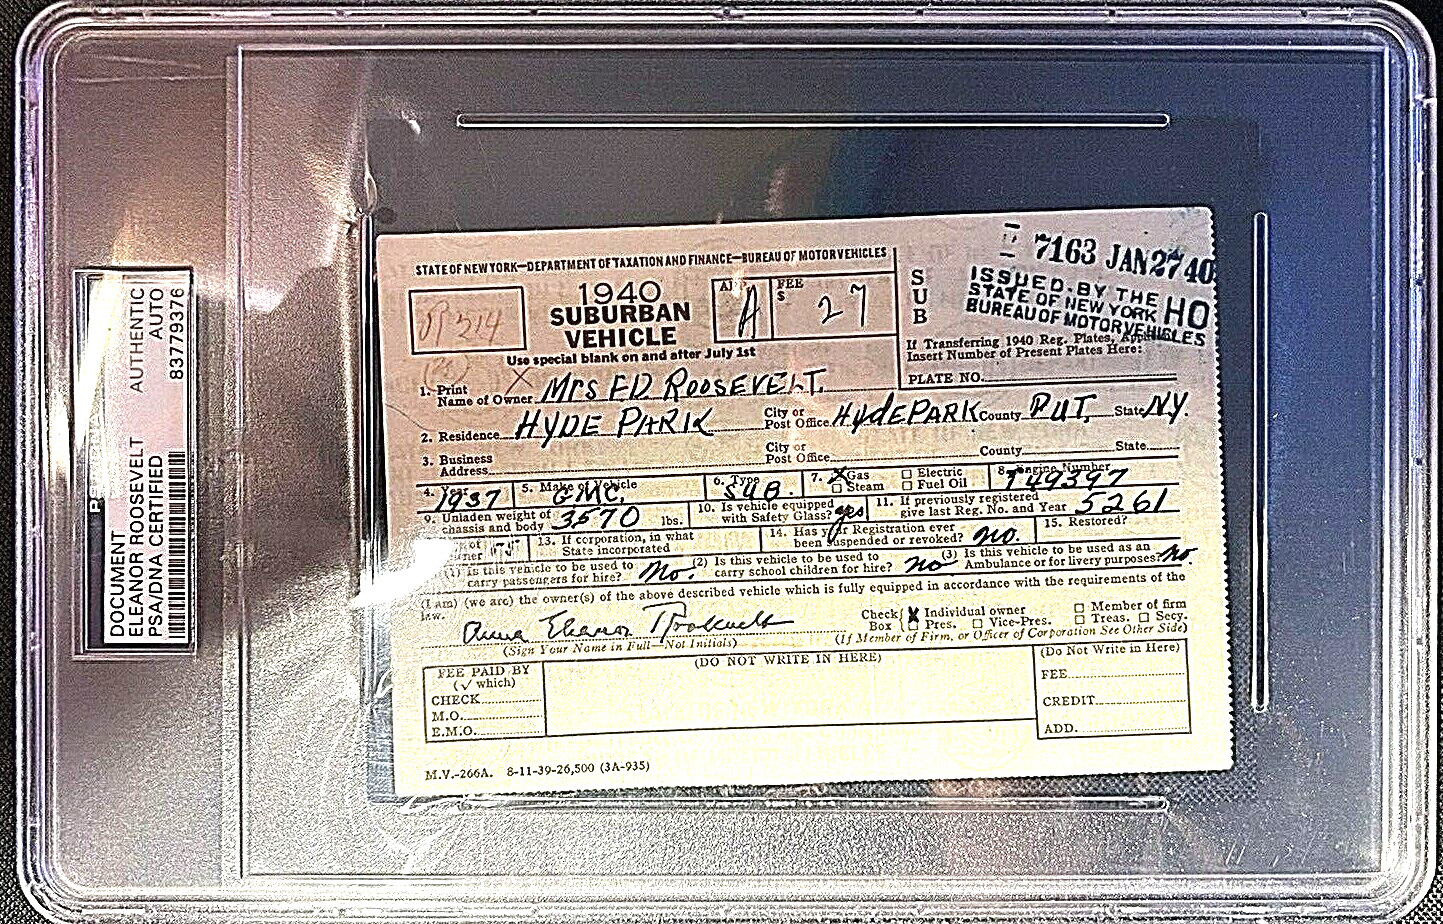 DOCUMENT
ELEANOR ROOSEVELT
PSA/DNA CERTIFIED
AUTHENTIC
AUTO
83779376
STATE OF NEW YORK—DEPARTMENT OF TAXATION AND FINANCE—BUREAU OF MOTOR VEHICLES
1940
SUBURBAN
VEHICLE
A
FEE
$ 27
Use special blank on and after July 1st
SUB
7163 JAN 27 40
ISSUED BY THE HO
STATE OF NEW YORK
BUREAU OF MOTOR VEHICLES
If Transferring 1940 Reg. Plates,
Insert Number of Present Plates Here:
PLATE NO.
1. Print
Name of Owner X Mrs FD ROOSEVELT.
2. Residence HYDE PARK City or Post Office HYdE PARK County PUT. State NY.
3. Business Address City or Post Office County State
4. Year 1937 5. Make of Vehicle GMC. 6. Type SUB. 7. X Gas Steam Electric Fuel Oil 8. Engine Number T49397
9. Unladen weight of chassis and body 3570 lbs. 10. Is vehicle equipped with Safety Glass? yes 11. If previously registered give last Reg. No. and Year 5261
13. If corporation, in what State incorporated 14. Has your Registration ever been suspended or revoked? no. 15. Restored?
(1) Is this vehicle to be used to carry passengers for hire? No. (2) Is this vehicle to be used to carry school children for hire? no (3) Is this vehicle to be used as an Ambulance or for livery purposes? No.
(I am) (we are) the owner(s) of the above described vehicle which is fully equipped in accordance with the requirements of the
law.
Anna Eleanor Roosevelt
(Sign Your Name in Full—Not Initials)
Check Box X Individual owner Member of firm
Pres. Vice-Pres. Treas. Secy.
(If Member of Firm, or Officer of Corporation See Other Side)
FEE PAID BY
(✓ which)
CHECK
M.O.
E.M.O.
(DO NOT WRITE IN HERE)
(Do Not Write in Here)
FEE
CREDIT
ADD.
M.V.-266A. 8-11-39-26,500 (3A-935)